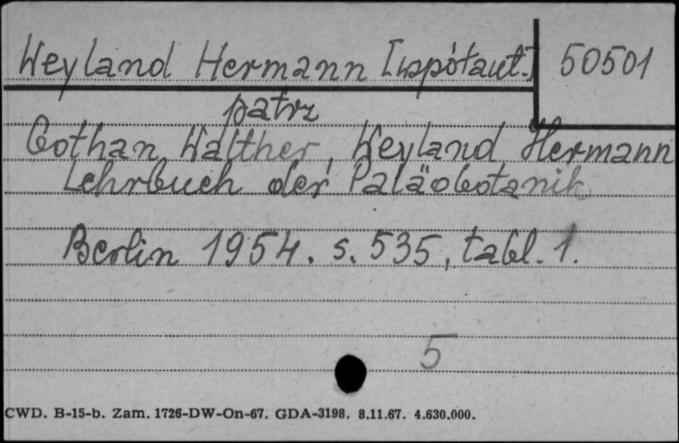 Weyland Hermann [współaut.] 50501
patrz
Gothan Walther, Weyland Hermann
Lehrbuch der Paläobotanik
Berlin 1954. s. 535, tabl. 1.
5
CWD. B-15-b. Zam. 1726-DW-On-67. GDA-3198. 8.11.67. 4.630.000.